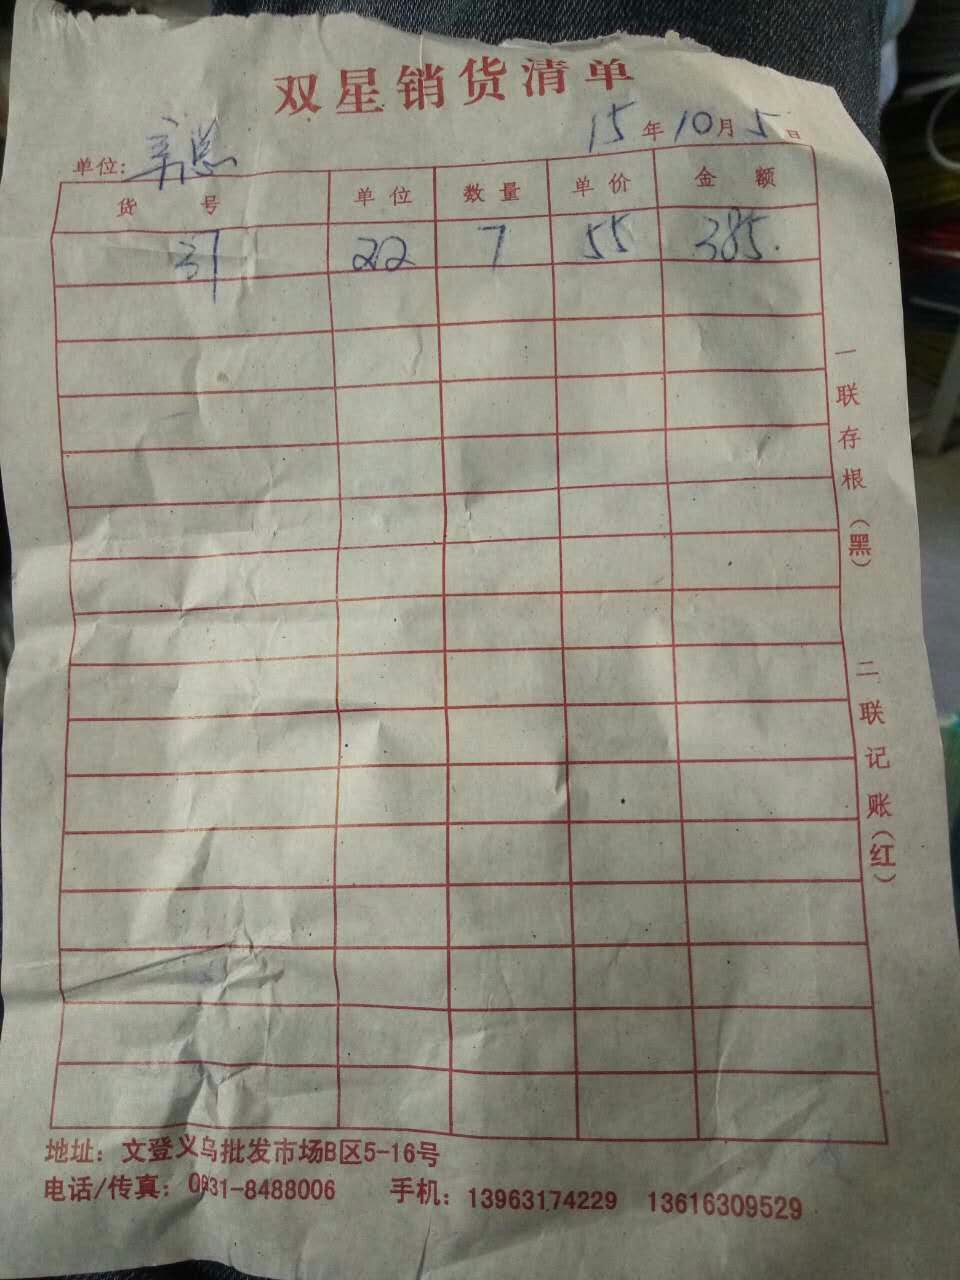 双星销货清单
15年10月5日
单位:
货号 单位 数量 单价 金额
22 7 55 385.
一联存根(黑)
二联记账(红)
地址: 文登义乌批发市场B区5-16号
电话/传真: 0631-8488006 手机: 13963174229 13616309529